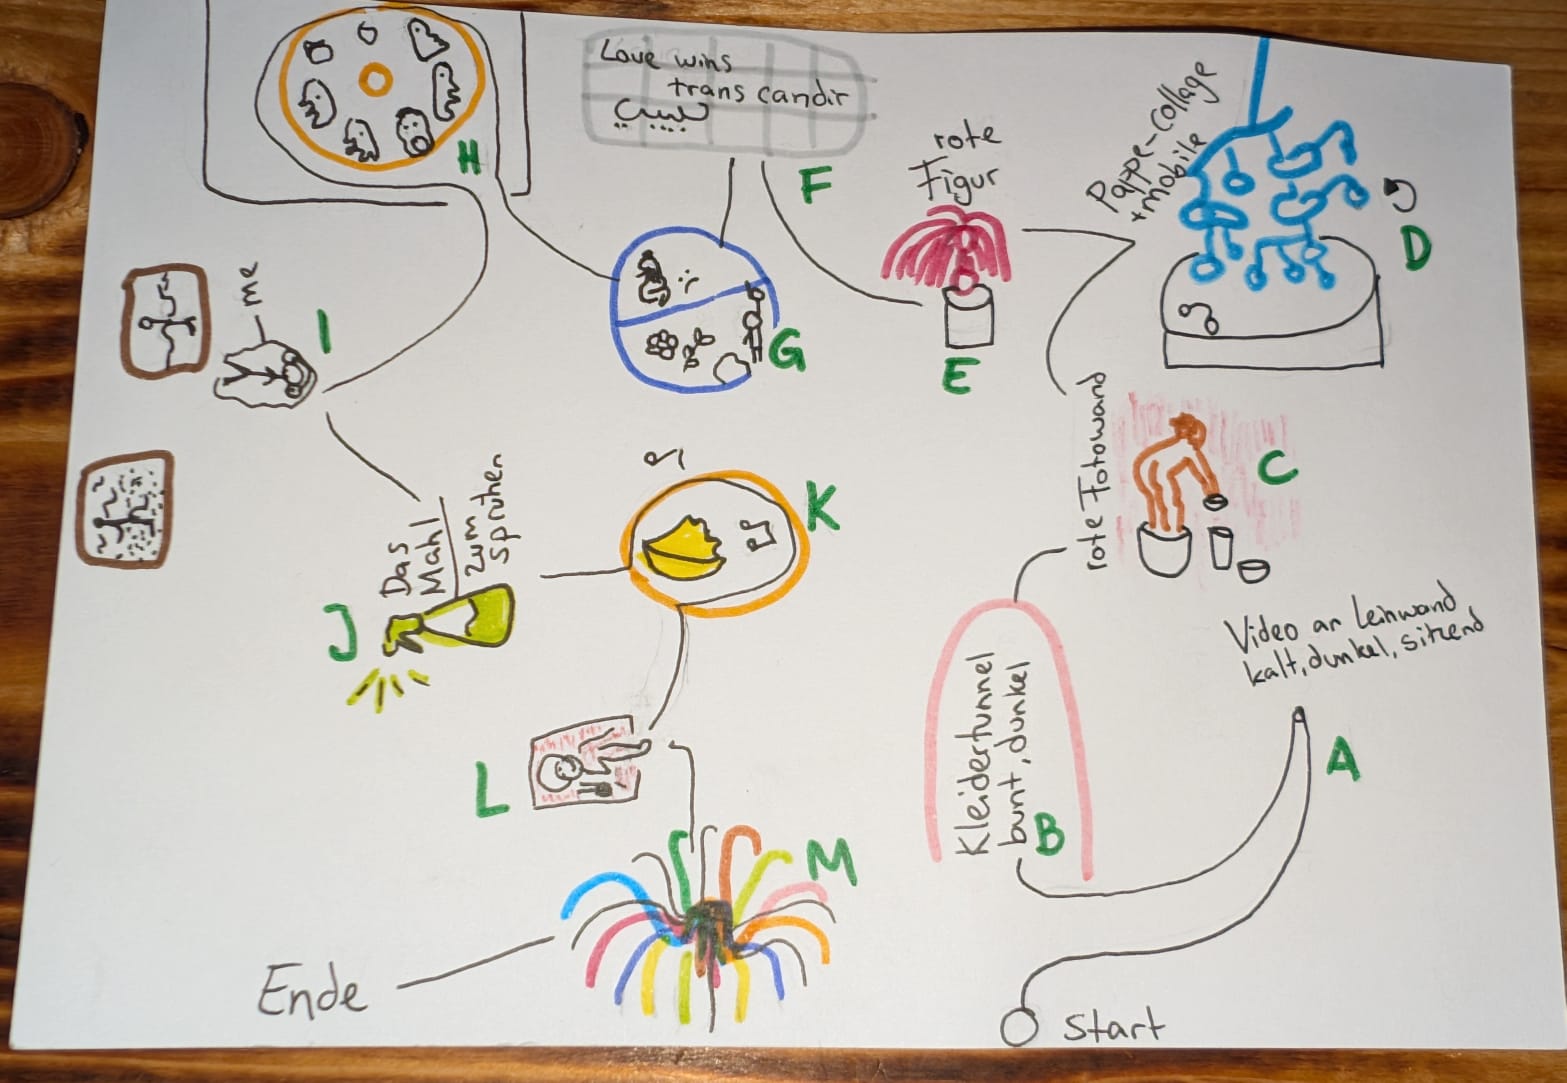 H
Love wins
trans candir
F
rote
Figur
E
Pappe-Collage
+mobile
D
me
I
G
rote Fotowand
C
K
Das
Mahl
zum
sprühen
J
Video an Leinwand
kalt, dunkel, sitzend
A
Kleidertunnel
bunt, dunkel
B
L
M
Ende
Start